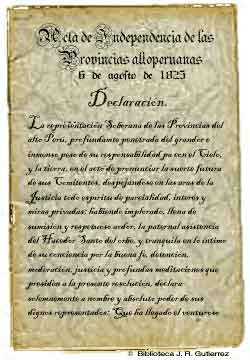 Acta de Independencia de las
Provincias altoperuanas
6 de agosto de 1825
Declaración.
La representación Soberana de las Provincias del
alto Perú, profundamente penetrada del grandor e
inmenso peso de su responsabilidad pa con el Cielo,
y la tierra, en el acto de pronunciar la suerte futura
de sus Comitentes, despojandose en las aras de la
Justicia todo espiritu de parcialidad, interés y
miras privadas; habiendo implorado, llena de
sumisión y respetuoso ardor, la paternal asistencia
del Hacedor Santo del orbe, y tranquila en lo íntimo
de su conciencia por la buena fe, detención,
moderación, justicia y profundas meditaciones que
presiden a la presente resolución, declara
solemnemente a nombre y absoluto poder de sus
dignos representados: Que ha llegado el venturoso
© Biblioteca J. R. Gutierrez